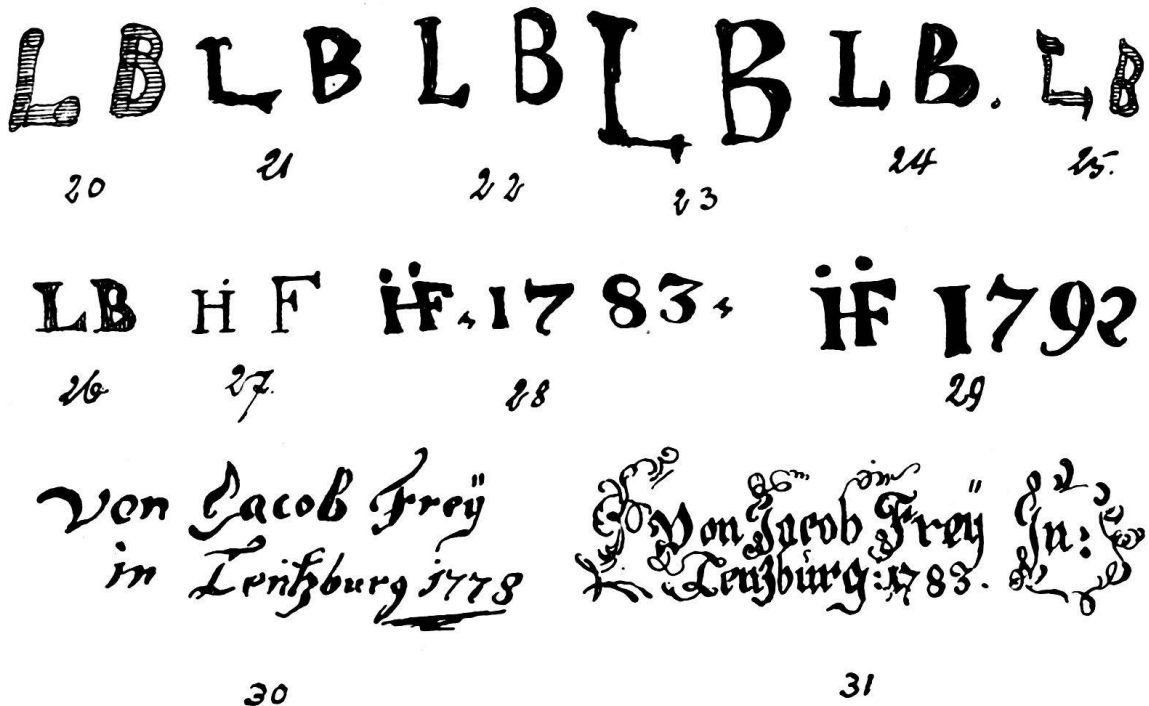 L B L B L B L B L B. L B
20 21 22 23 24 25.
LB H F ḦF. 1783. ḦF 1792
26 27. 28 29
Von Jacob Freÿ
in Lentzburg 1778
Von Jacob Freÿ In:
Lenzburg: 1783.
30 31